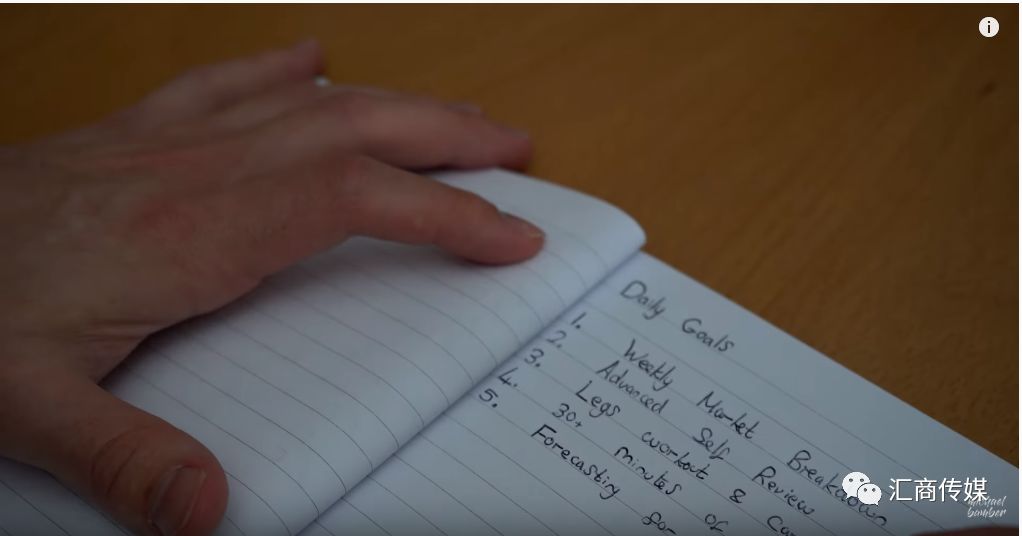 Daily Goals
1. Weekly Market Breakdown
2. Advanced Self Review
3. Legs workout &
4. 30+ minutes of
5. Forecasting for
汇商传媒
bamber